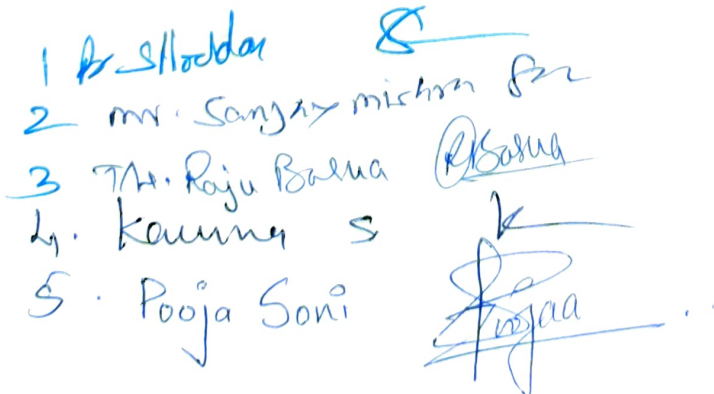 1 Dr. S Hoddar
2 mr. Sanjay mishra
3 Th. Raju Barua RBarua
4. Kaurna S K
5. Pooja Soni Poojaa